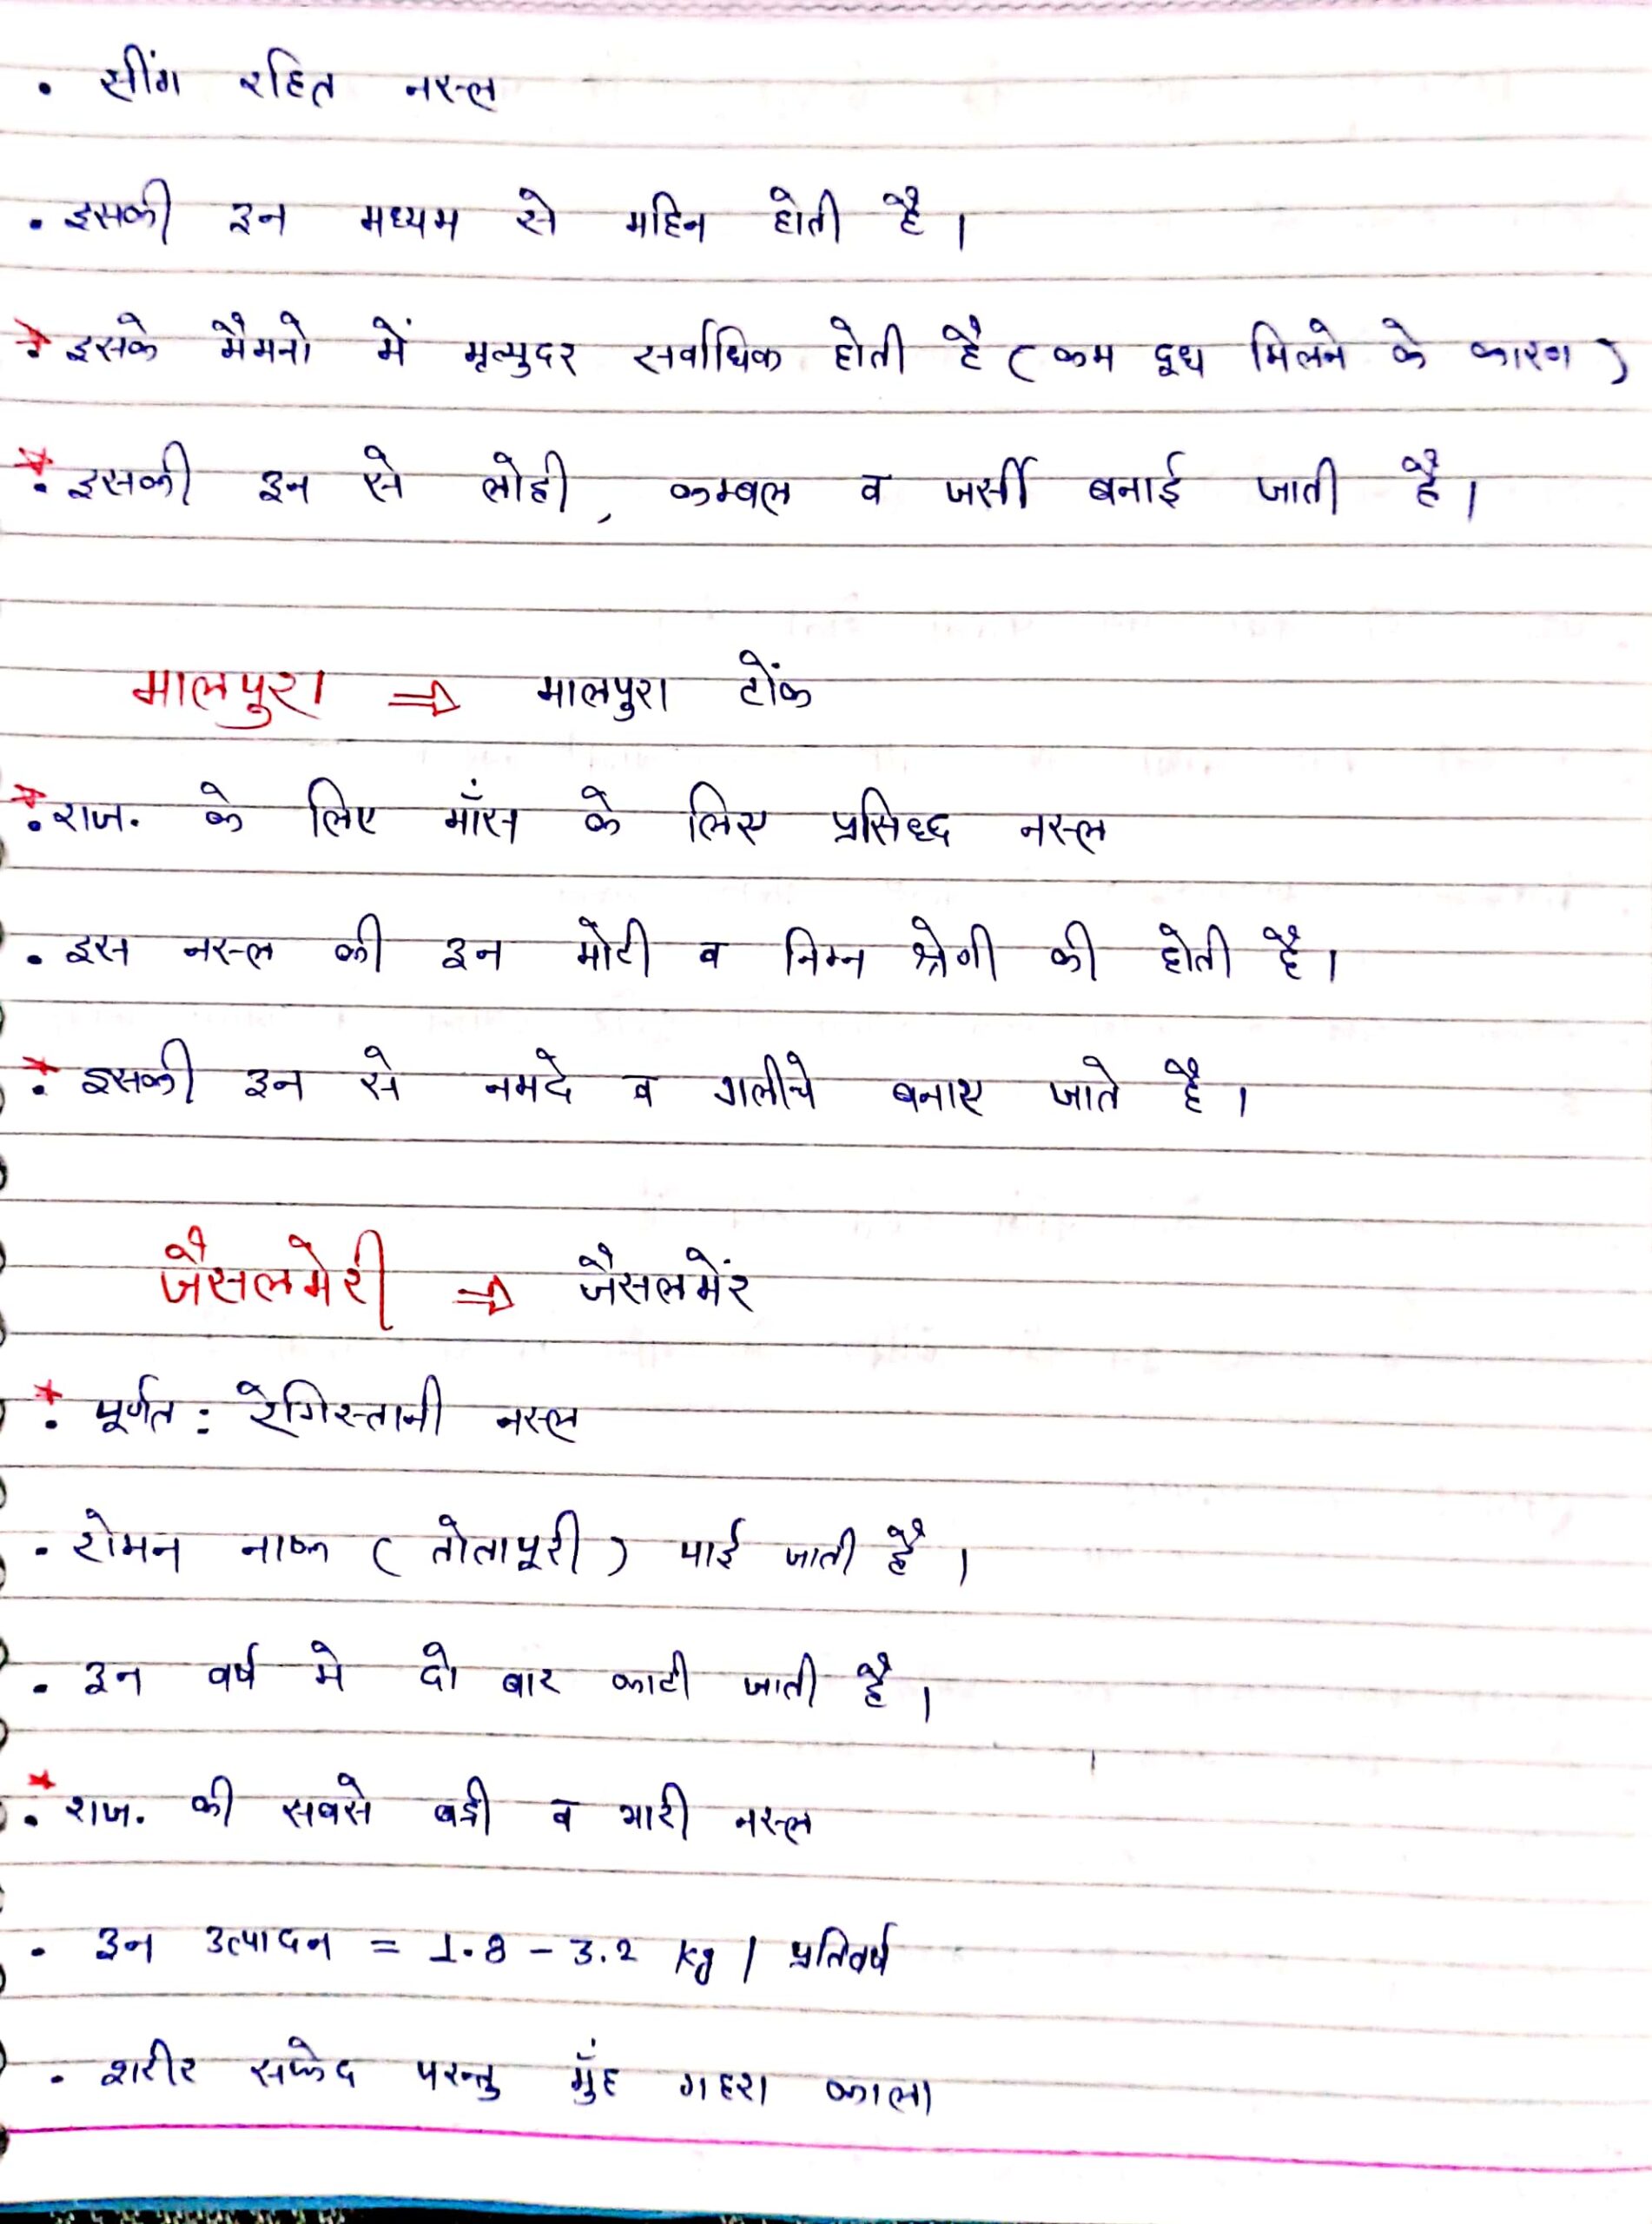 • सींग रहित नस्ल
• इसकी उन मध्यम से महिन होती है।
* इसके मैमनो में मृत्युदर सर्वाधिक होती है (कम दूध मिलने के कारण)
* इसकी उन से लोही, कम्बल व जर्सी बनाई जाती है।
मालपुरा ⇒ मालपुरा टोंक
* राज. के लिए माँस के लिए प्रसिध्द नस्ल
• इस नस्ल की उन मोटी व निम्न श्रेणी की होती है।
* इसकी उन से नमदे व गलीचे बनाए जाते है।
जैसलमेरी ⇒ जैसलमेंर
* पूर्णत: रेगिस्तानी नस्ल
• रोमन नाक (तोतापूरी) पाई जाती है।
• उन वर्ष मे दो बार काटी जाती है।
* राज. की सबसे बडी व भारी नस्ल
• उन उत्पादन = 1.8 - 3.2 kg / प्रतिवर्ष
• शरीर सफेद परन्तु मुँह गहरा काला